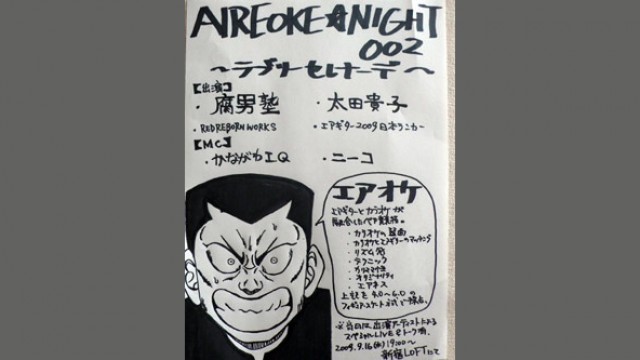 AIREOKE★NIGHT
002
〜ラブリーセレナーデ〜
【出演】
・腐男塾 ・太田貴子
・REDREBORNWORKS ・エアギター2009日本ランカー
【MC】
・かながわIQ ・ニーコ
エアオケ
エアギターとカラオケが
・カラオケの選曲
・カラオケとエアギターのマッチング
・リズム感
・テクニック
・カリスマ性
・オリジナリティ
・エアネス
上記を4.0〜6.0の
フィギュアスケート方式で採点。
※当日は出演アーティストによる
スペシャルLIVE&トーク有。
2009.9.16(水)19:00〜
新宿LOFTにて